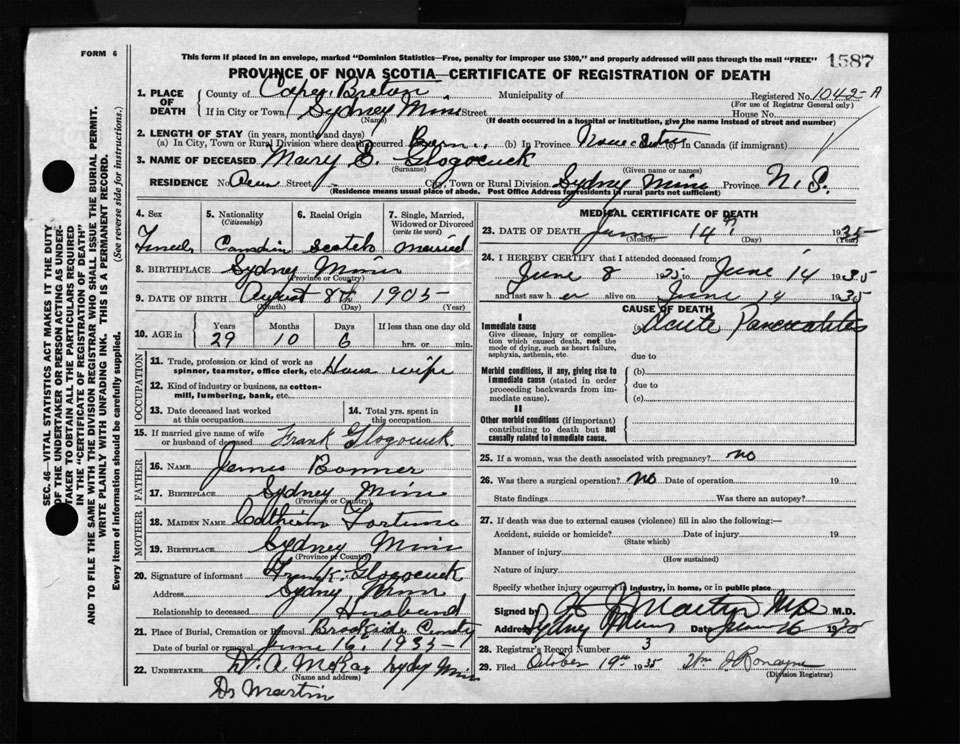 FORM 6
This form if placed in an envelope, marked "Dominion Statistics—Free, penalty for improper use $300," and properly addressed will pass through the mail "FREE"
1587
PROVINCE OF NOVA SCOTIA—CERTIFICATE OF REGISTRATION OF DEATH
1. PLACE OF DEATH
County of Cape Breton Municipality of Registered No. 1042-A
(For use of Registrar General only)
If in City or Town Sydney Mines Street House No.
(Name) (If death occurred in a hospital or institution, give the name instead of street and number)
2. LENGTH OF STAY (in years, months and days)
(a) In City, Town or Rural Division where death occurred Born. (b) In Province Nova Scotia (c) In Canada (if immigrant)
3. NAME OF DECEASED Mary E. Glogocuck
(Surname) (Given name or names)
RESIDENCE No. Street City, Town or Rural Division Sydney Mines Province N. S.
(Residence means usual place of abode. Post Office Address for residents in rural parts not sufficient)
4. Sex
5. Nationality
(Citizenship)
6. Racial Origin
7. Single, Married, Widowed or Divorced
(write the word)
Female Canadian Scotch Married
8. BIRTHPLACE Sydney Mines
(Province or Country)
9. DATE OF BIRTH August 8th 1905
(Month) (Day) (Year)
10. AGE in
Years Months Days If less than one day old
29 10 6 hrs. or min.
OCCUPATION
11. Trade, profession or kind of work as spinner, teamster, office clerk, etc. House wife
12. Kind of industry or business, as cotton-mill, lumbering, bank, etc.
13. Date deceased last worked at this occupation
14. Total yrs. spent in this occupation
15. If married give name of wife or husband of deceased Frank Glogocuck.
FATHER
16. NAME James Bonner
17. BIRTHPLACE Sydney Mines
(Province or Country)
MOTHER
18. MAIDEN NAME Fortune
19. BIRTHPLACE Sydney Mines
(Province or Country)
20. Signature of informant Frank Glogocuck
Address Sydney Mines
Relationship to deceased Husband
21. Place of Burial, Cremation or Removal Brookside Cemetery
Date of burial or removal June 16, 1935
22. UNDERTAKER A. McKay Sydney Mines
(Name and address)
Dr Martin
MEDICAL CERTIFICATE OF DEATH
23. DATE OF DEATH June 14th 1935
(Month) (Day) (Year)
24. I HEREBY CERTIFY that I attended deceased from
June 8 1935 to June 14 1935
and last saw her alive on June 14 1935
CAUSE OF DEATH
I
Immediate cause
Give disease, injury or complication which caused death, not the mode of dying, such as heart failure, asphyxia, asthenia, etc.
(a) Acute Pancreatitis
due to
Morbid conditions, if any, giving rise to immediate cause (stated in order proceeding backwards from immediate cause).
(b)
due to
(c)
II
Other morbid conditions (if important) contributing to death but not causally related to immediate cause.
25. If a woman, was the death associated with pregnancy? no
26. Was there a surgical operation? no Date of operation 19
State findings Was there an autopsy?
27. If death was due to external causes (violence) fill in also the following:—
Accident, suicide or homicide? Date of injury 19
(State which)
Manner of injury
(How sustained)
Nature of injury
Specify whether injury occurred in industry, in home, or in public place
Signed by Martin MD M.D.
Address Sydney Mines Date June 16 1935
28. Registrar's Record Number 3
29. Filed October 19th 1935 Wm J. Ronayne
(Division Registrar)
SEC. 46—VITAL STATISTICS ACT MAKES IT THE DUTY
OF THE UNDERTAKER OR PERSON ACTING AS UNDER-
TAKER TO OBTAIN ALL THE PARTICULARS REQUIRED
IN THE "CERTIFICATE OF REGISTRATION OF DEATH"
AND TO FILE THE SAME WITH THE DIVISION REGISTRAR WHO SHALL ISSUE THE BURIAL PERMIT.
WRITE PLAINLY WITH UNFADING INK. THIS IS A PERMANENT RECORD.
Every item of information should be carefully supplied. (See reverse side for instructions.)